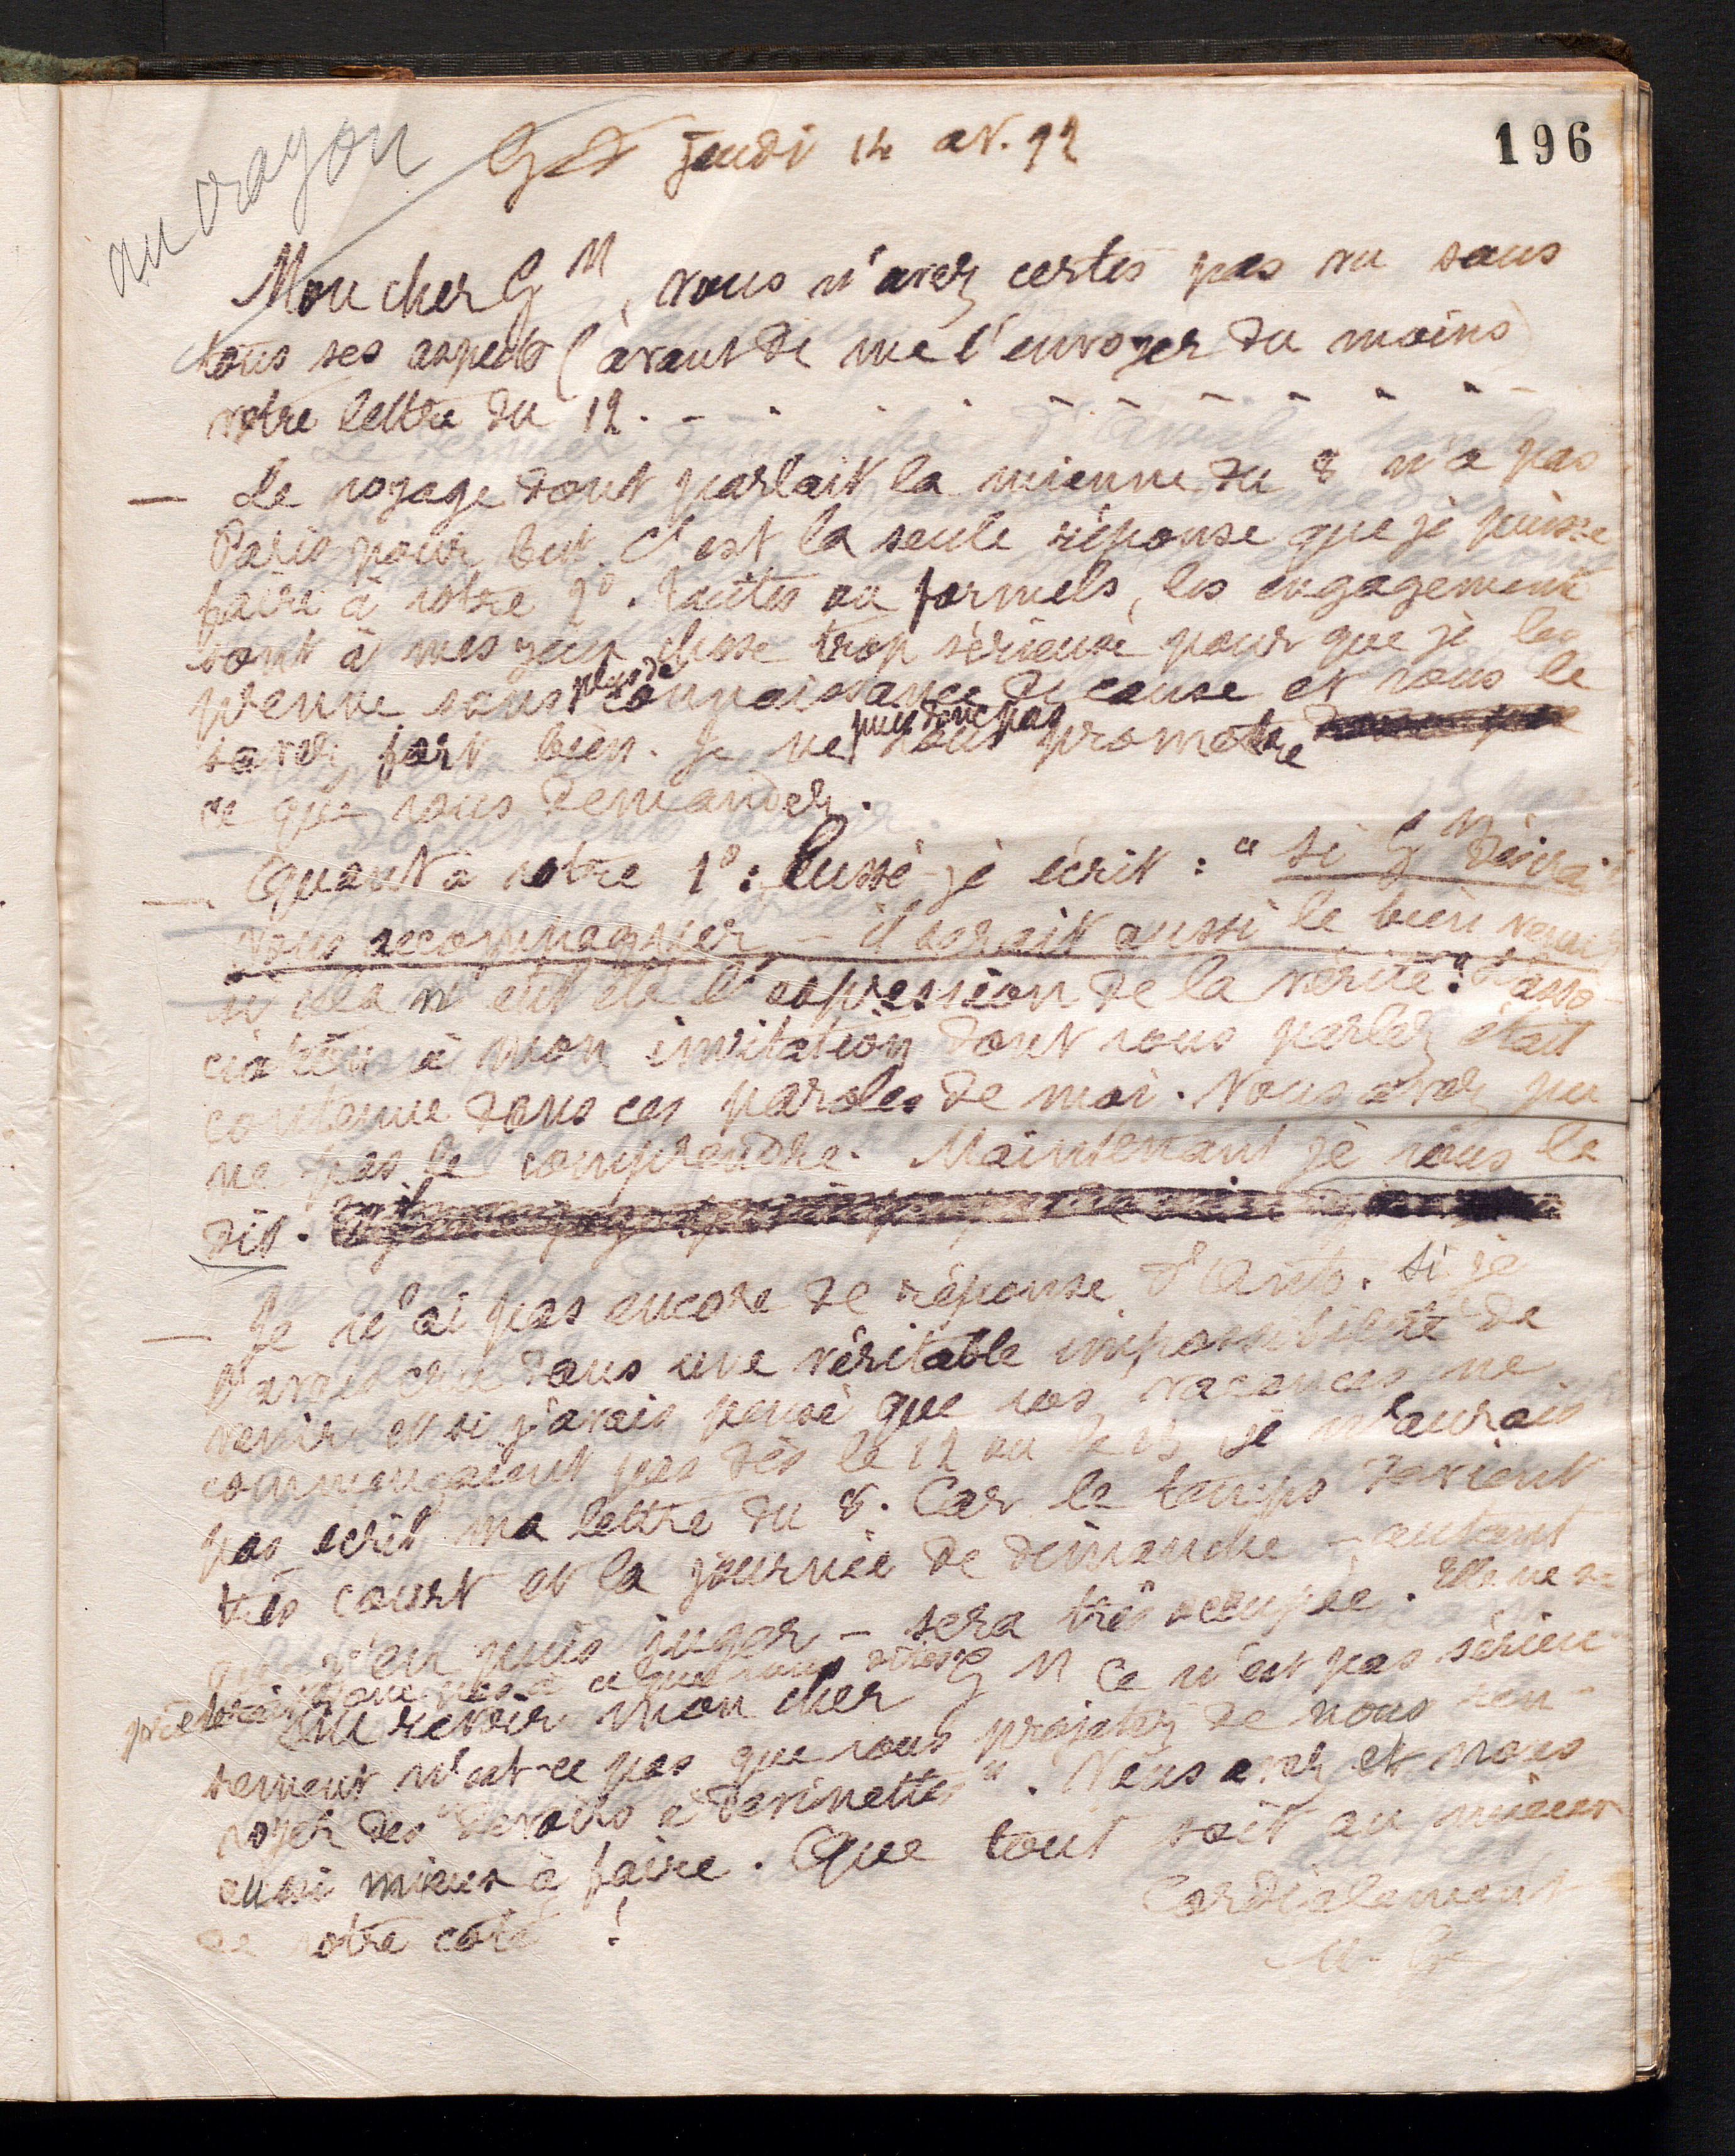 au crayon
196
G Jeudi 14 av. 92
Mon cher G M, vous n'avez certes pas vu sous
tous ses aspects (avant de me l'envoyer du moins)
votre lettre du 12. - . . . - - - - - - -
— Le voyage dont parlait la mienne du 8 n'a pas
Paris pour but. C'est la seule réponse que je puisse
faire à votre 2°. Tacites ou formels, les engagements
sont à mes yeux chose trop sérieuse pour que je les
prenne sans plus de connaissance de cause et vous le
savez fort bien. Je ne puis donc pas vous promettre
ce que vous demandez.
— Quant à votre 1°: Eussé-je écrit : "si G M désirait
vous accompagner - il serait aussi le bien venu
si cela n'eut été l'expression de la vérité? L'asso-
ciation à mon invitation dont vous parlez était
contenue dans ces paroles de moi. Vous avez pu
ne pas le comprendre. Maintenant je vous le
dit.
— Je n'ai pas encore de réponse d'Ant. Si je
l'avais cru dans une véritable impossibilité de
venir et si j'avais pensé que vos vacances ne
commençaient pas dès le 12 ou le 13 je n'aurais
pas écrit ma lettre du 8. Car le temps devient
très court et la journée de dimanche - autant
que j'en puis juger - sera très occupée. Elle ne se
prêterait donc pas à ce que vous dites
Au revoir mon cher G M Ce n'est pas sérieu-
sement n'est-ce pas que vous projetez de nous ren-
voyer des "devoirs à devinettes". Vous avez et nous
aussi mieux à faire. Que tout soit au mieux
de votre côté !
Cordialement
M. G